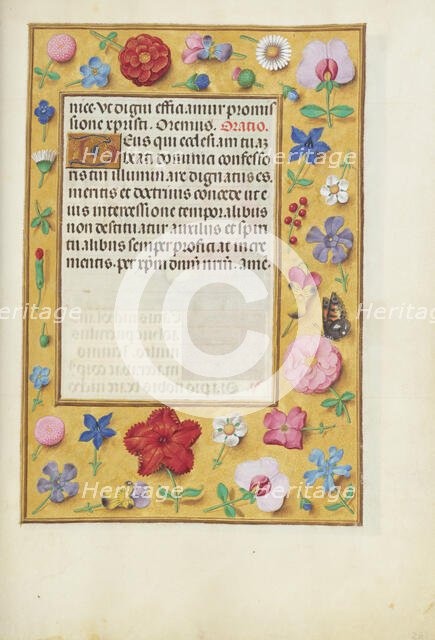 nice. Vt digni efficiamur promis
sione xpristi. Oremus. Oratio.
Deus qui ecclesiam tuaz
beati dominici confesso
ris tui illuminare dignatus es
meritis et doctrinis concede ut e
ius intercessione temporalibus
non destituatur auxiliis et spiri
tualibus semper proficiat incre
mentis. per xpm dnm nrm. ame.
Heritage
Heritage
Heritage
Heritage
Heritage